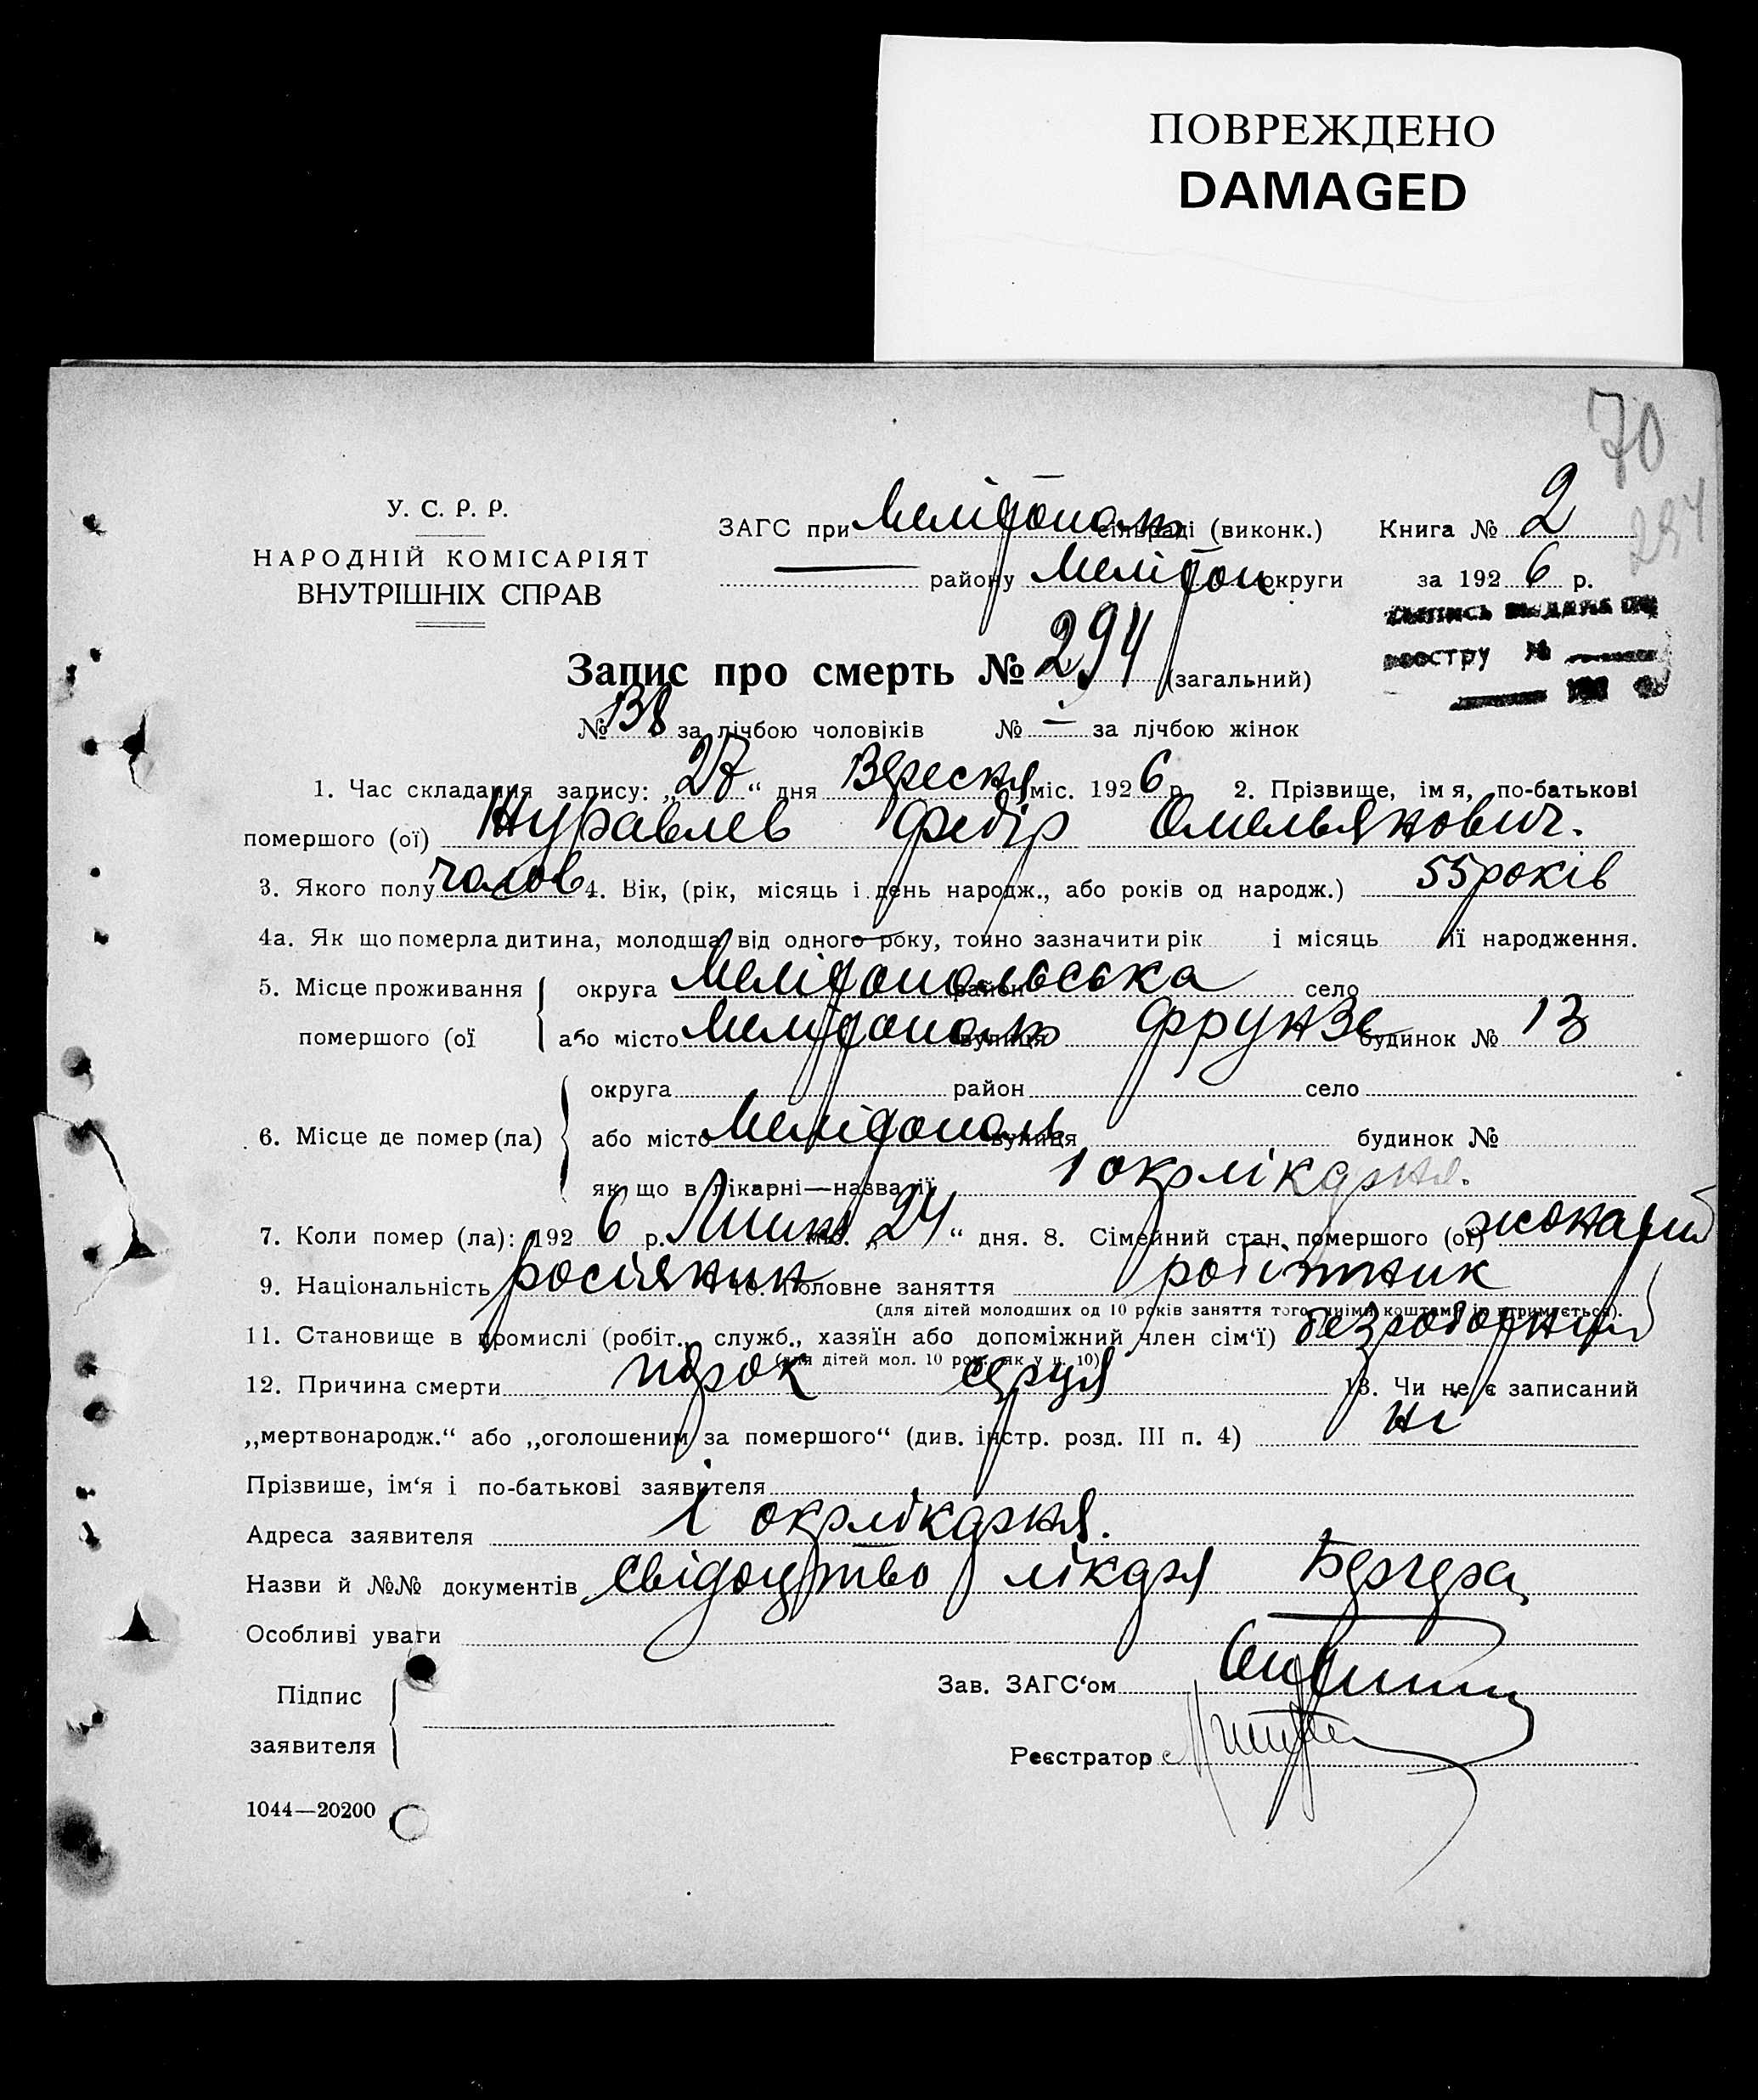 ПОВРЕЖДЕНО
DAMAGED
70
294
У. С. Р. Р.
НАРОДНІЙ КОМІСАРІЯТ
ВНУТРІШНІХ СПРАВ
ЗАГС при Мелітополь сільраді (виконк.) Книга № 2
району Меліт́оп округи за 192 6 р.
реостру №
Запис про смерть № 294 (загальний)
№ 138 за лічбою чоловіків № — за лічбою жінок
1. Час складання запису: „27“ дня Вересня міс. 1926 р. 2. Прізвище, імя, по-батькові
помершого (ої) Журавлев Федір Омельянович.
3. Якого полу чолов 4. Вік, (рік, місяць і день народж., або років од народж.) 55 років
4а. Як що померла дитина, молодша від одного року, точно зазначити рік і місяць її народження.
5. Місце проживання округа Мелітопольська район село
помершого (ої або місто Мелітополь вулиця Фрунзе будинок № 13
округа район село
6. Місце де помер(ла) або місто Мелітополь вулиця будинок №
як що в лікарні—назва її 1 окрлікарня.
7. Коли помер (ла): 192 6 р. Липня міс. „24“ дня. 8. Сімейний стан помершого (ої) жонатий
9. Національність росіянин 10. Головне заняття робітник
(для дітей молодших од 10 років заняття того, чиїми коштами їх утримується).
11. Становище в промислі (робіт., служб., хазяїн або допоміжний член сім‘ї) безробітний
(для дітей мол. 10 рок. як у п. 10)
12. Причина смерти порок серця 13. Чи не є записаний
„мертвонародж.“ або „оголошеним за помершого“ (див. інстр. розд. III п. 4) ні
Прізвише, ім‘я і по-батькові заявителя
Адреса заявителя 1 окрлікарня.
Назви й №№ документів свідоцтво лікаря Бергера
Особливі уваги
Підпис Зав. ЗАГС‘ом
заявителя Реєстратор
1044—20200